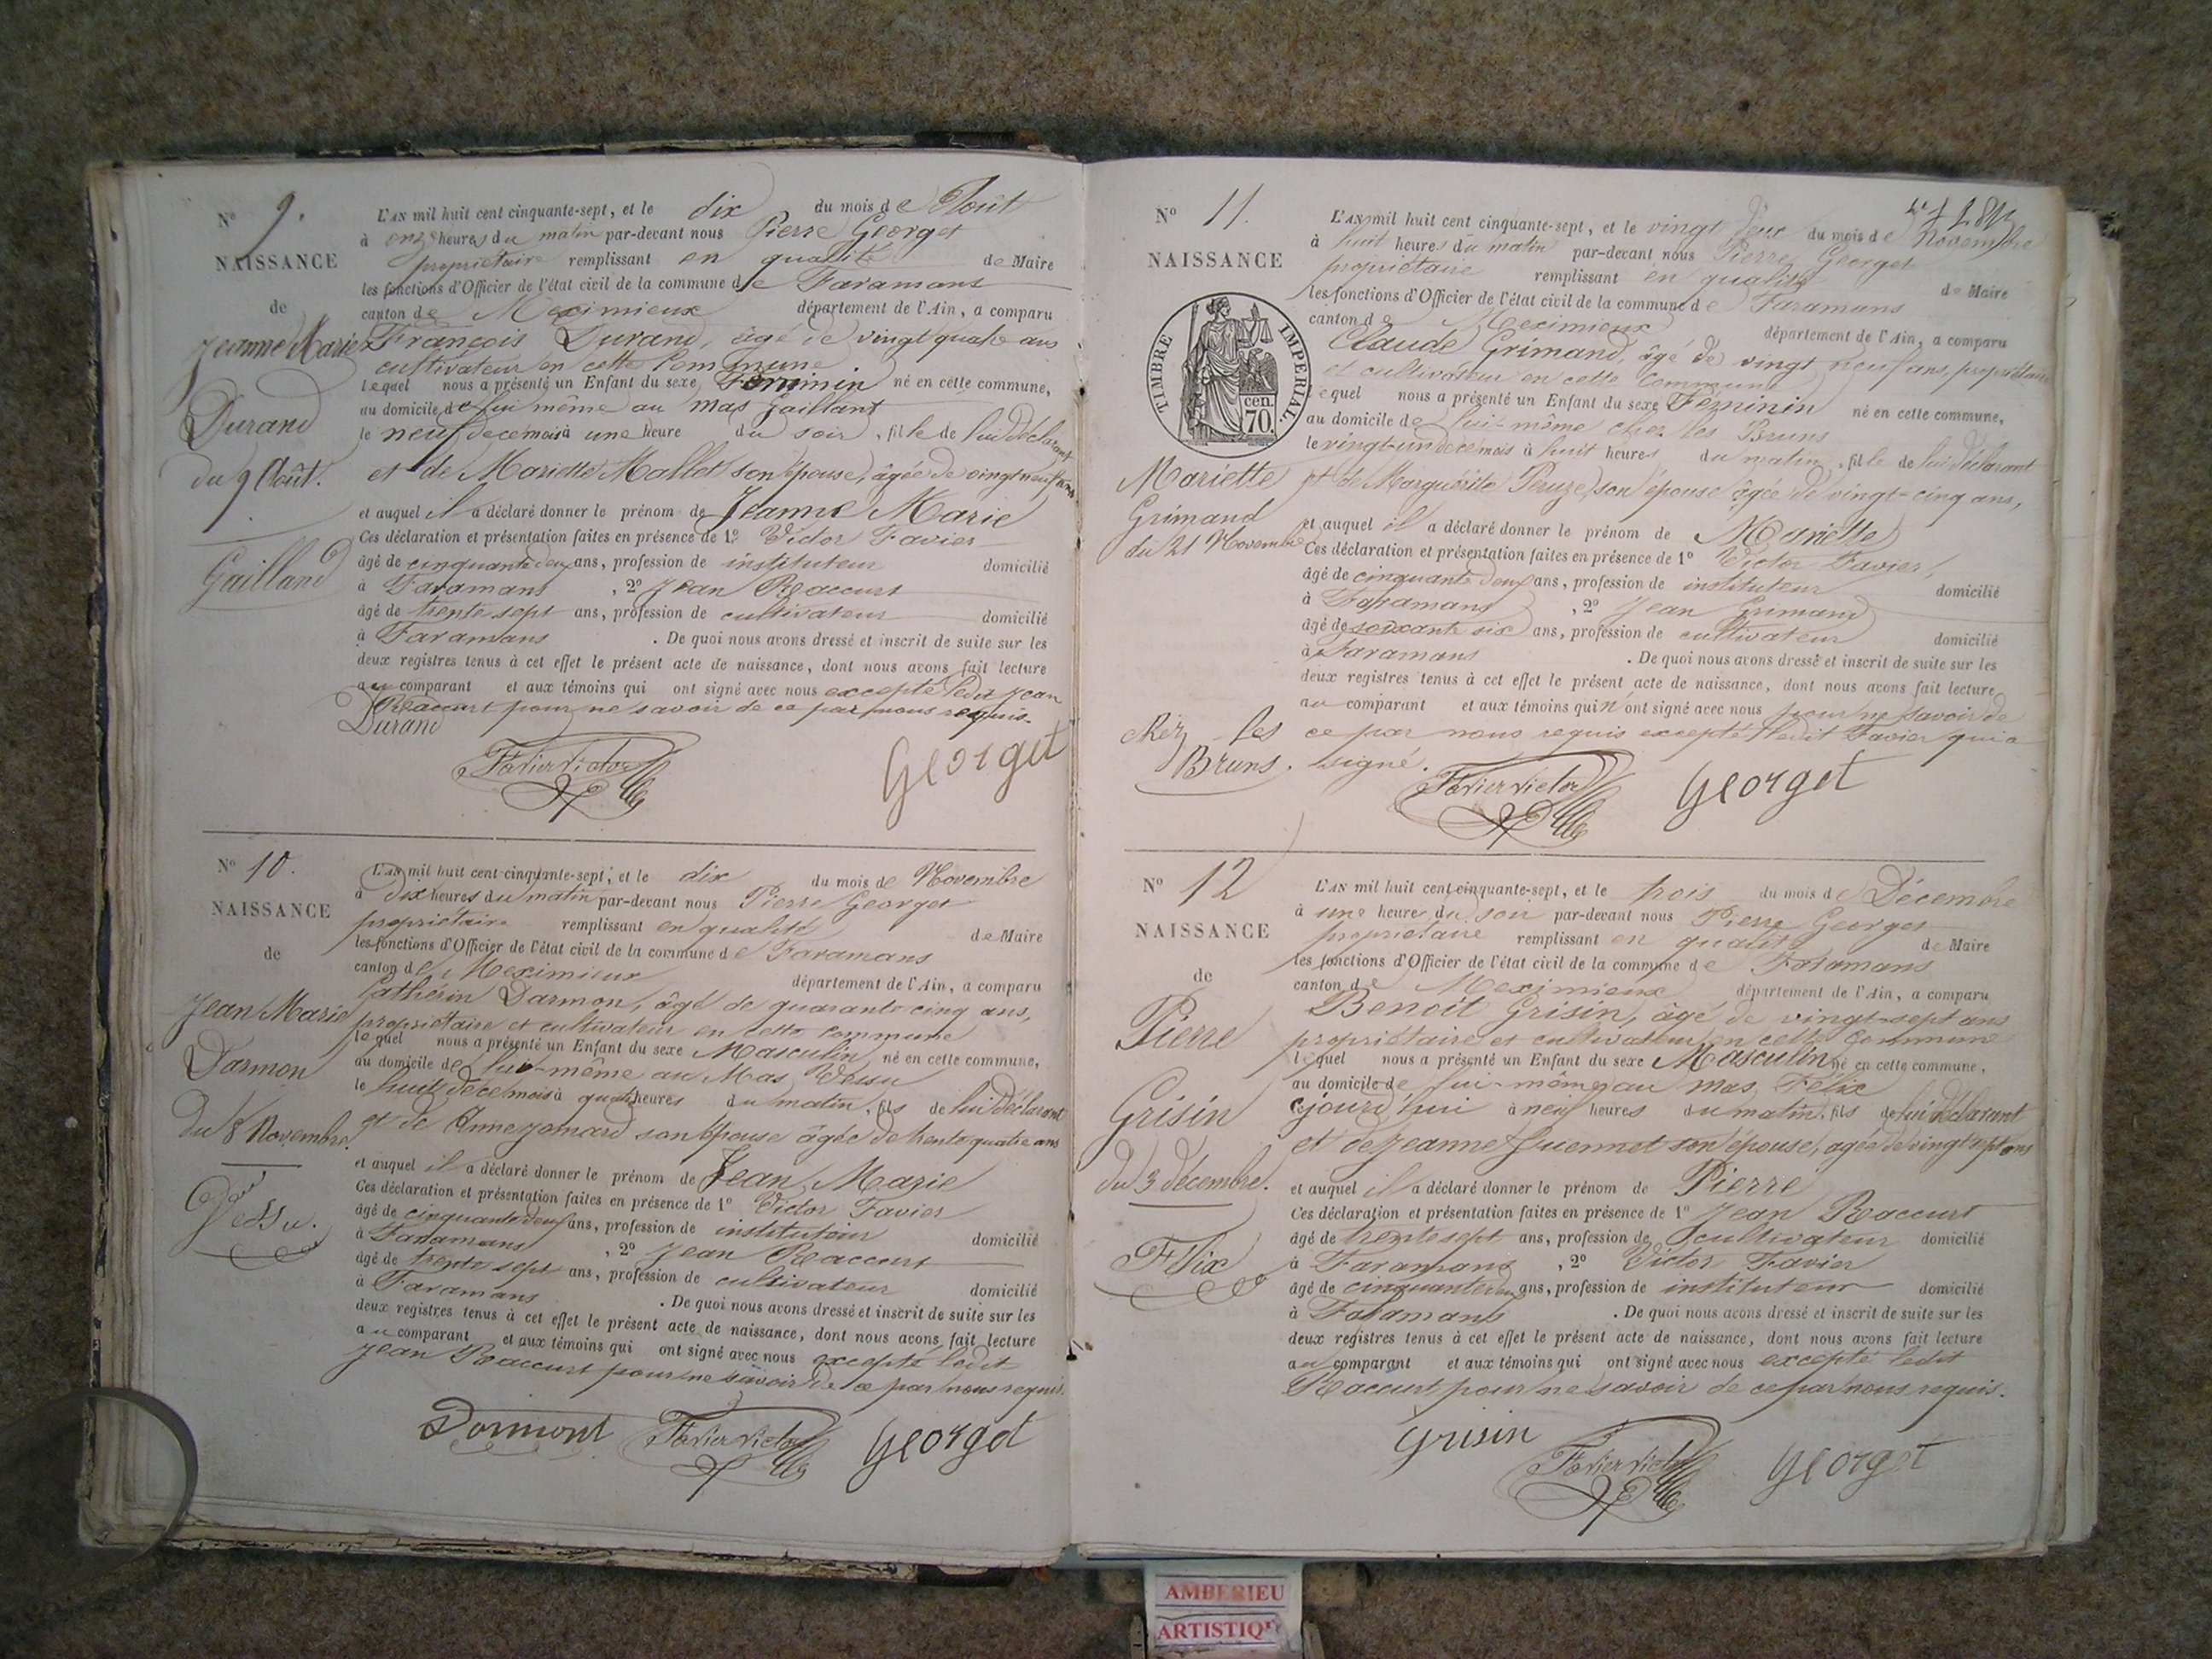 N° 9.
NAISSANCE
de
Jeanne Marie
Durand
du 9 Août.
Gailland
L'AN mil huit cent cinquante-sept, et le dix du mois de Août
à onze heures du matin par-devant nous Pierre Georget
propriétaire remplissant en qualité de Maire
les fonctions d'Officier de l'état civil de la commune de Faramans
canton de Meximieux département de l'Ain, a comparu
François Durand, âgé de vingt quatre ans
cultivateur en cette Commune
lequel nous a présenté un Enfant du sexe Féminin né en cette commune,
au domicile de lui même au mas Gaillant
le neuf de ce mois à une heure du soir, fille de lui déclarant
et de Mariette Mallet son épouse, âgée de vingt neuf ans
et auquel il a déclaré donner le prénom de Jeanne Marie
Ces déclaration et présentation faites en présence de 1° Victor Favier
âgé de cinquante deux ans, profession de instituteur domicilié
à Faramans, 2° Jean Raccurt
âgé de trente sept ans, profession de cultivateur domicilié
à Faramans. De quoi nous avons dressé et inscrit de suite sur les
deux registres tenus à cet effet le présent acte de naissance, dont nous avons fait lecture
au comparant et aux témoins qui ont signé avec nous excepté ledit Jean
Raccurt pour ne savoir de ce par nous requis.
Durand
Favier Victor Georget
N° 10.
NAISSANCE
de
Jean Marie
Darmon
du 8 Novembre.
Vessu.
L'AN mil huit cent cinquante-sept, et le dix du mois de Novembre
à dix heures du matin par-devant nous Pierre Georget
propriétaire remplissant en qualité de Maire
les fonctions d'Officier de l'état civil de la commune de Faramans
canton de Meximieux département de l'Ain, a comparu
Cathérin Darmon, âgé de quarante cinq ans,
propriétaire et cultivateur en cette commune
lequel nous a présenté un Enfant du sexe Masculin, né en cette commune,
au domicile de lui-même au Mas Vessu
le huit de ce mois à quatre heures du matin, fils de lui déclarant
et de Anne Jomard son épouse âgée de trente quatre ans
et auquel il a déclaré donner le prénom de Jean Marie
Ces déclaration et présentation faites en présence de 1° Victor Favier
âgé de cinquante deux ans, profession de instituteur domicilié
à Faramans, 2° Jean Raccurt
âgé de trente sept ans, profession de cultivateur domicilié
à Faramans. De quoi nous avons dressé et inscrit de suite sur les
deux registres tenus à cet effet le présent acte de naissance, dont nous avons fait lecture
au comparant et aux témoins qui ont signé avec nous excepté ledit
Jean Raccurt pour ne savoir de ce par nous requis.
Dormont Favier Victor Georget
N° 11.
NAISSANCE
TIMBRE IMPERIAL.
cen.
70.
Mariette
Grimand
du 21 Novembre
chez les
Bruns.
L'AN mil huit cent cinquante-sept, et le vingt deux du mois de Novembre
à huit heures du matin par-devant nous Pierre Georget
propriétaire remplissant en qualité de Maire
les fonctions d'Officier de l'état civil de la commune de Faramans
canton de Meximieux département de l'Ain, a comparu
Claude Grimand, âgé de vingt neuf ans, propriétaire
et cultivateur en cette Commune
lequel nous a présenté un Enfant du sexe Féminin né en cette commune,
au domicile de lui-même chez les Bruns
le vingt-un de ce mois à huit heures du matin, fille de lui déclarant
et de Marguérite Peruze son épouse âgée de vingt-cinq ans,
et auquel il a déclaré donner le prénom de Mariette
Ces déclaration et présentation faites en présence de 1° Victor Favier,
âgé de cinquante deux ans, profession de instituteur domicilié
à Faramans, 2° Jean Grimand
âgé de soixante six ans, profession de cultivateur domicilié
à Faramans. De quoi nous avons dressé et inscrit de suite sur les
deux registres tenus à cet effet le présent acte de naissance, dont nous avons fait lecture
au comparant et aux témoins qui n'ont signé avec nous pour ne savoir de
ce par nous requis excepté ledit Favier qui a
signé.
Favier Victor Georget
N° 12
NAISSANCE
de
Pierre
Grisin
du 3 décembre.
Félix
L'AN mil huit cent cinquante-sept, et le trois du mois de Décembre
à une heure du soir par-devant nous Pierre Georget
propriétaire remplissant en qualité de Maire
les fonctions d'Officier de l'état civil de la commune de Faramans
canton de Meximieux département de l'Ain, a comparu
Benoît Grisin, âgé de vingt-sept ans
propriétaire et cultivateur en cette Commune
lequel nous a présenté un Enfant du sexe Masculin né en cette commune,
au domicile de lui-même au mas Félix
cejourd'hui à neuf heures du matin, fils de lui déclarant
et de Jeanne Guennet son épouse, âgée de vingt sept ans
et auquel il a déclaré donner le prénom de Pierre
Ces déclaration et présentation faites en présence de 1° Jean Raccurt
âgé de trente sept ans, profession de cultivateur domicilié
à Faramans, 2° Victor Favier
âgé de cinquante deux ans, profession de instituteur domicilié
à Faramans. De quoi nous avons dressé et inscrit de suite sur les
deux registres tenus à cet effet le présent acte de naissance, dont nous avons fait lecture
au comparant et aux témoins qui ont signé avec nous excepté ledit
Raccurt pour ne savoir de ce par nous requis.
Grisin
Favier Victor Georget
AMBERIEU
ARTISTIQU